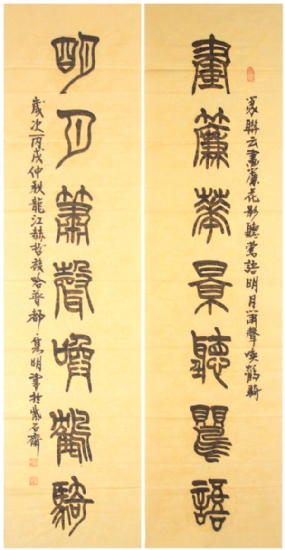 畫簾華景聽鸎語
篆联云畫簾花影聽鶯語明月簫聲喚鶴騎
明月簫聲喚鶴騎
歲次丙戌仲秋龍江赫哲族哈普都·雋明書於紫石齋